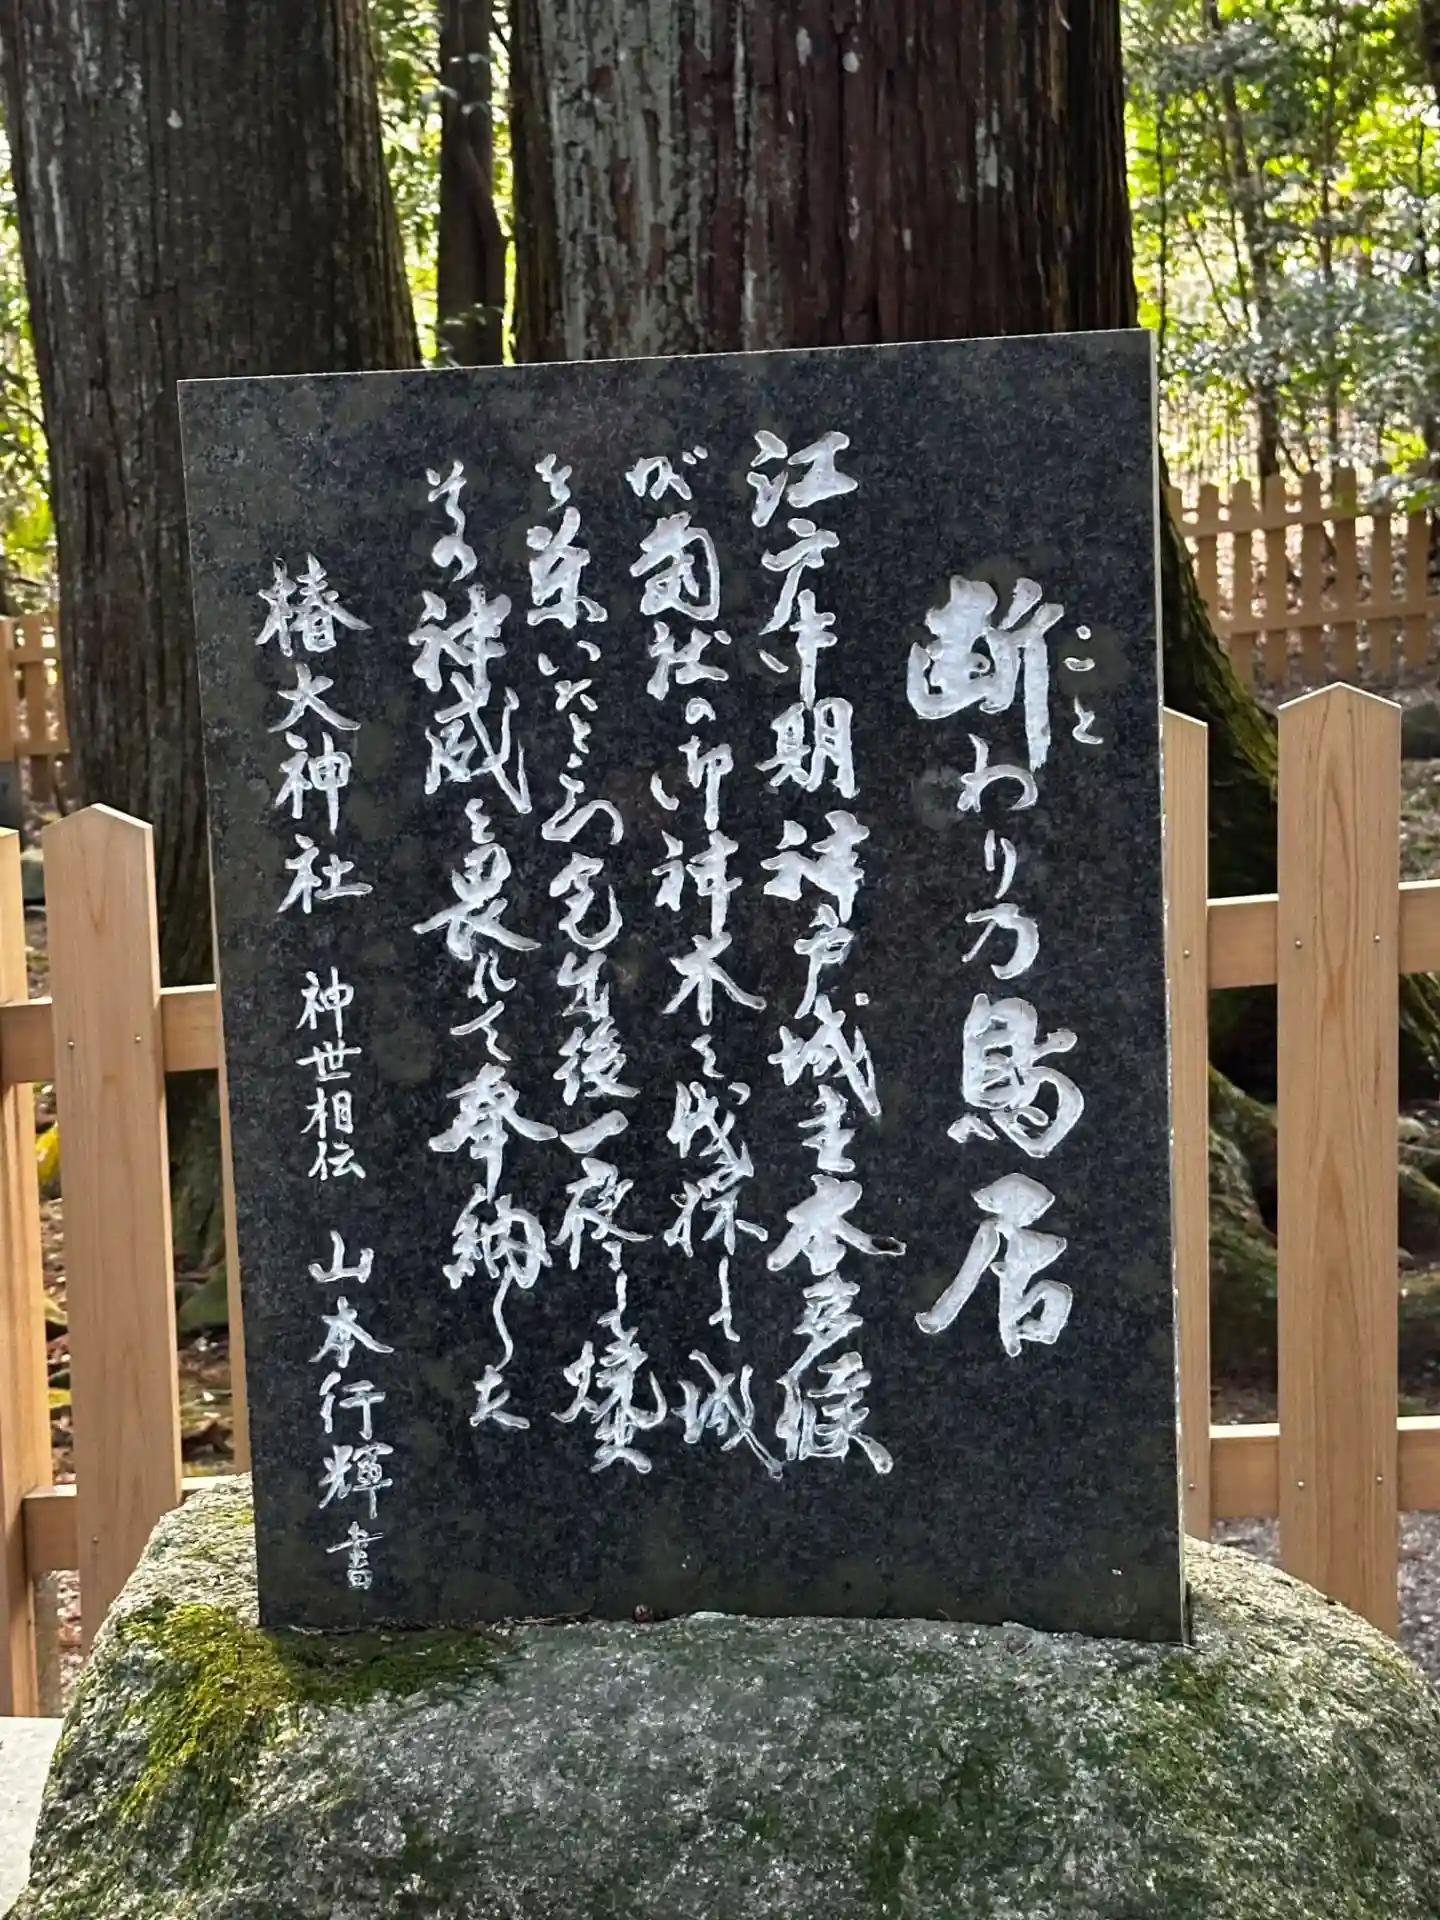 断わり乃鳥居
こと
江戸中期神戸城主本多侯
が当社の御神木を伐採し城
を築いたところ完成後一夜にして焼失
その神威を畏れて奉納した
椿大神社 神世相伝 山本行輝 書